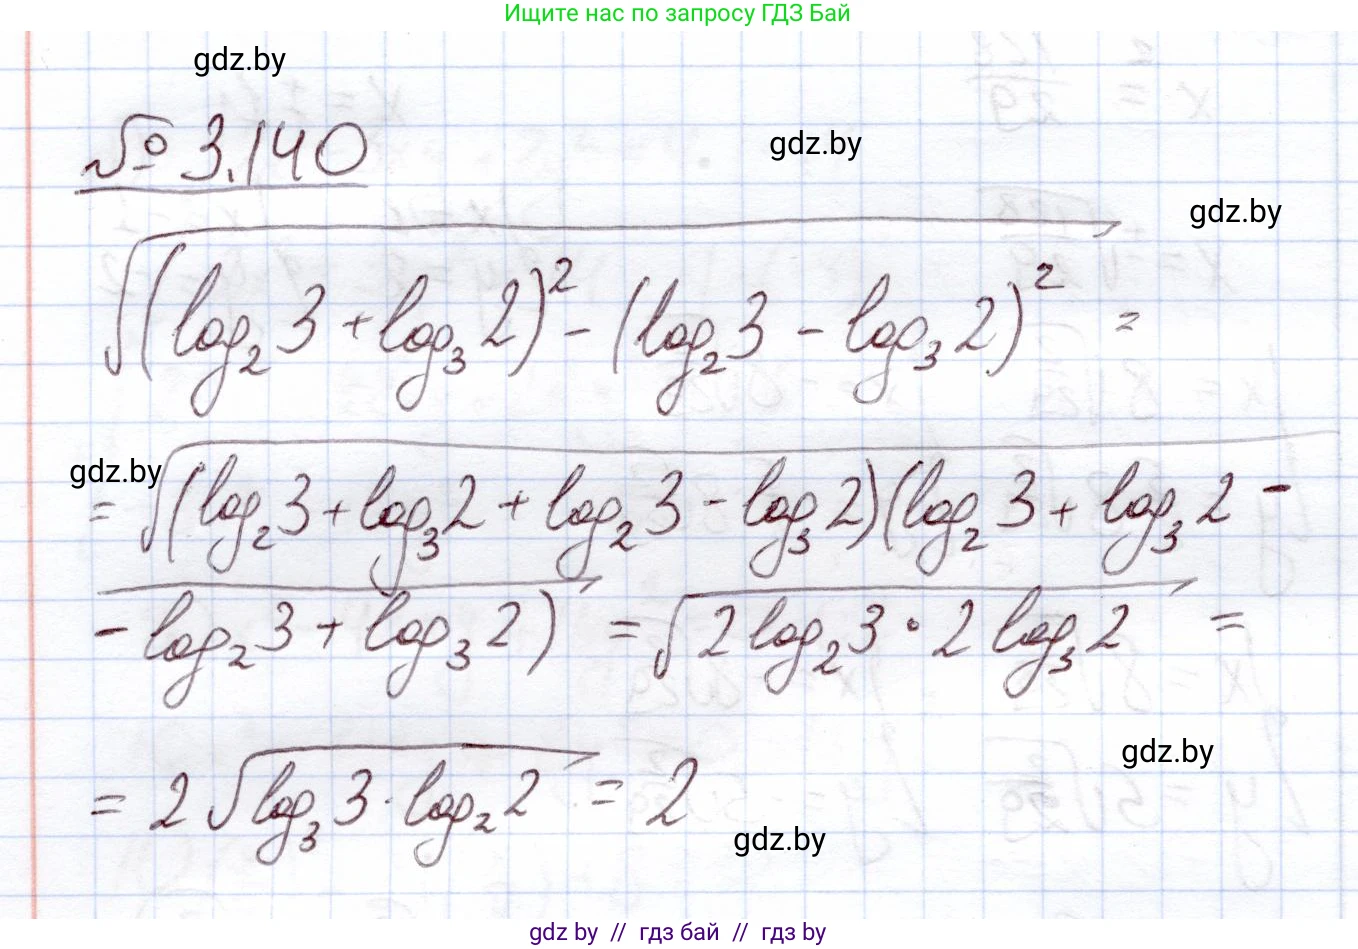 Ищите нас по запросу ГДЗ Бай
gdz.by
№ 3.140
gdz.by
gdz.by
√((log₂3 + log₃2)² - (log₂3 - log₃2)²) =
gdz.by
= √((log₂3 + log₃2 + log₂3 - log₃2)(log₂3 + log₃2 -
- log₂3 + log₃2)) = √(2log₂3 · 2log₃2) =
gdz.by
= 2√(log₃3 · log₂2) = 2
gdz.by
gdz.by // гдз бай // гдз by